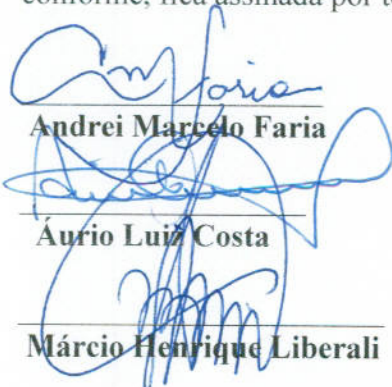 conforme, fica assinada por t
Andrei Marcelo Faria
Áurio Luiz Costa
Márcio Henrique Liberali